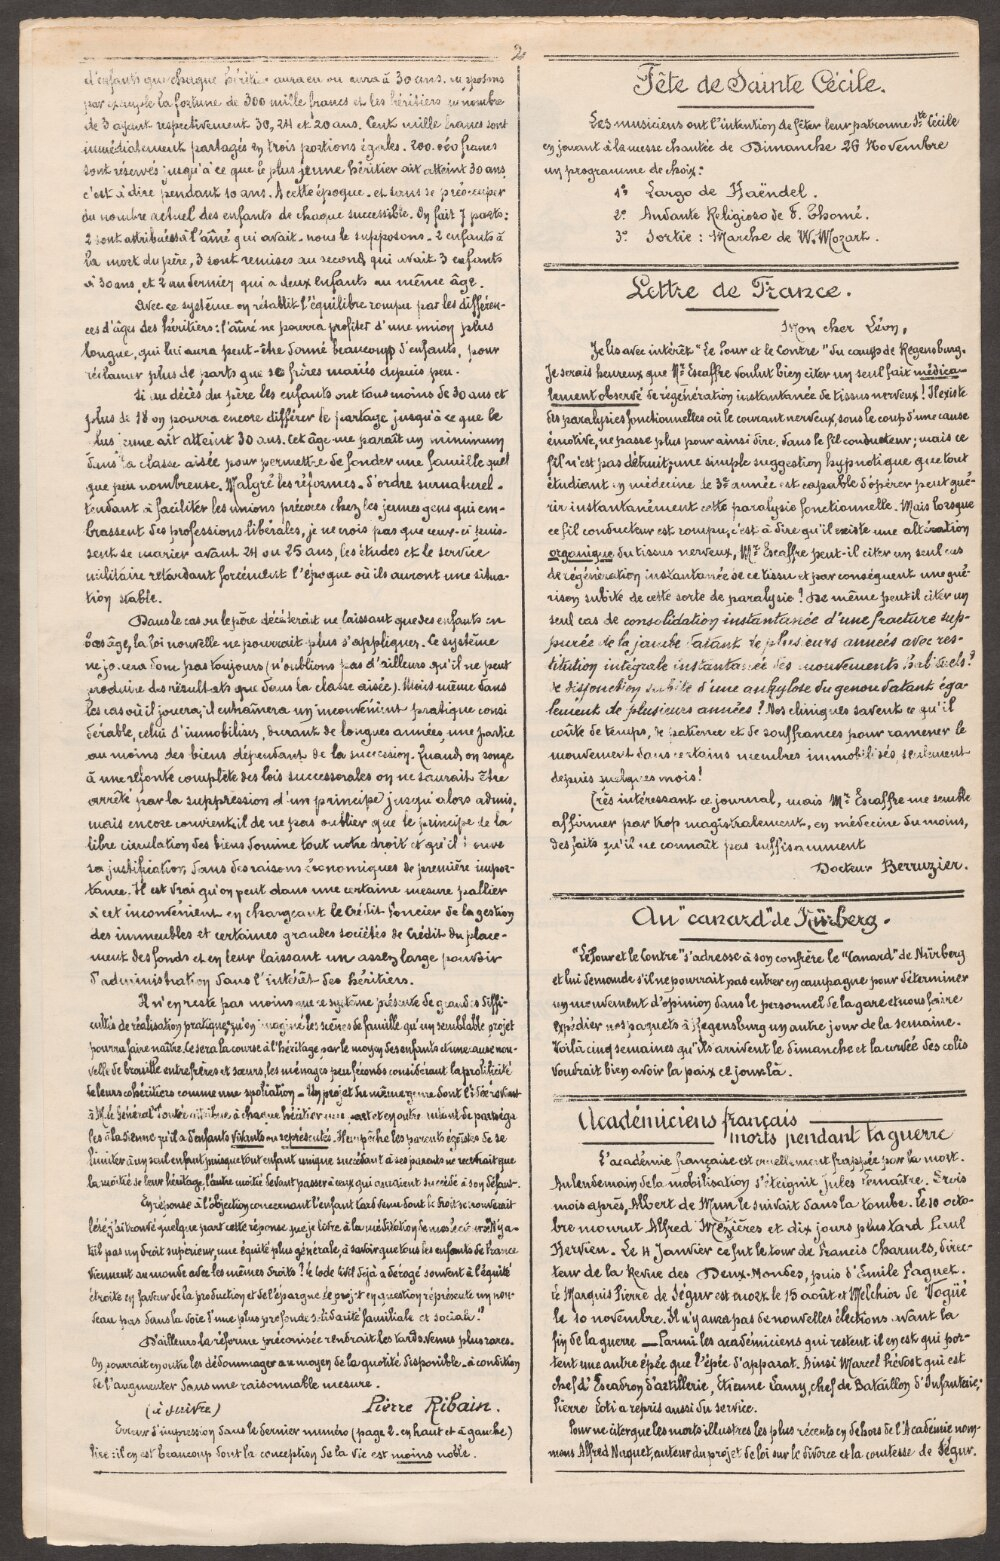 2.
d'enfants que chaque héritier aura eu ou aura à 30 ans. Supposons
par exemple la fortune de 300 mille francs et les héritiers au nombre
de 3 ayant respectivement 30, 24 et 20 ans. Cent mille francs sont
immédiatement partagés en trois portions égales. 200.000 francs
sont réservés jusqu'à ce que le plus jeune héritier ait atteint 30 ans
c'est à dire pendant 10 ans. A cette époque - et sans se préoccuper
du nombre actuel des enfants de chaque successible. On fait 7 parts:
2 sont attribuées à l'aîné qui avait - nous le supposons - 2 enfants à
la mort du père, 3 sont remises au second qui avait 3 enfants
à 30 ans, et 2 au dernier qui a deux enfants au même âge.
Avec ce système on rétablit l'équilibre rompu par les différen-
ces d'âges des héritiers: l'aîné ne pourra profiter d'une union plus
longue, qui lui aura peut-être donné beaucoup d'enfants, pour
réclamer plus de parts que ses frères mariés depuis peu.
Si au décès du père les enfants ont tous moins de 30 ans et
plus de 18 on pourra encore différer le partage jusqu'à ce que le
plus jeune ait atteint 30 ans. Cet âge me paraît un minimum
dans la classe aisée pour permettre de fonder une famille quel
que peu nombreuse. Malgré les réformes - d'ordre surnaturel -
tendant à faciliter les unions précoces chez les jeunes gens qui em-
brassent des professions libérales, je ne crois pas que ceux-ci puis-
sent se marier avant 24 ou 25 ans, les études et le service
militaire retardant forcément l'époque où ils auront une situa-
tion stable.
Dans le cas ou le père décèderait ne laissant que des enfants en
bas âge, la loi nouvelle ne pourrait plus s'appliquer. Ce système
ne jouera donc pas toujours (n'oublions pas d'ailleurs qu'il ne peut
produire des résultats que dans la classe aisée). Mais même dans
les cas où il jouera, il entraînera un inconvénient pratique consi
dérable, celui d'immobiliser, durant de longues années, une partie
au moins des biens dépendant de la succession. Quand on songe
à une refonte complète des lois successorales on ne saurait être
arrêté par la suppression d'un principe jusqu'alors admis,
mais encore convient-il de ne pas oublier que le principe de la
libre circulation des biens domine tout notre droit et qu'il trouve
sa justification dans des raisons économiques de première impor-
tance. Il est vrai qu'on peut dans une certaine mesure pallier
à cet inconvénient en chargeant le Crédit Foncier de la gestion
des immeubles et certaines grandes sociétés de Crédit du place-
ment des fonds et en leur laissant un assez large pouvoir
d'administration dans l'intérêt des héritiers.
Il n'en reste pas moins que ce système présente de grandes diffi-
cultés de réalisation pratique; qu'on imagine les scènes de famille qu'un semblable projet
pourra faire naître. Ce sera la course à l'héritage par le moyen des enfants et une cause nou-
velle de brouille entre frères et sœurs, les ménages peu féconds considérant la prolificité
de leurs cohéritiers comme une spoliation - Un projet du même genre dont l'idée revient
à M. le Général Toutée attribue à chaque héritier une part et en outre autant de partage
les à la sienne qu'il a d'enfants vivants ou représentés. Il empêche les parents égoïstes de se
limiter à un seul enfant puisque tout enfant unique succédant à ses parents ne recevrait que
la moitié de leur héritage, l'autre moitié devant passer à ceux qui auraient succédé à son défaut.
En réponse à l'objection concernant l'enfant tard venu dont le droit se trouverait
lésé, j'ai trouvé quelque part cette réponse que je livre à la méditation de nos lecteurs "N'y a-
t-il pas un droit supérieur, une équité plus générale, à savoir que tous les enfants de France
viennent au monde avec les mêmes droits? Le Code Civil déjà a dérogé souvent à l'équité
étroite en faveur de la production et de l'épargne. Le projet en question représente un nou-
veau pas dans la voie d'une plus profonde solidarité familiale et sociale."
D'ailleurs la réforme préconisée rendrait les tards venus plus rares.
On pourrait en outre les dédommager au moyen de la quotité disponible - à condition
de l'augmenter dans une raisonnable mesure.
(à suivre) Pierre Ribain.
Erreur d'impression dans le dernier numéro (page 2. en haut et à gauche)
lire: il en est beaucoup dont la conception de la Vie est moins noble.
Fête de Sainte Cécile.
Les musiciens ont l'intention de fêter leur patronne Ste Cécile
en jouant à la messe chantée de Dimanche 26 Novembre
un programme de choix:
1º Largo de Haëndel.
2º Andante Religioso de F. Thomé.
3º Sortie: Marche de W. Mozart.
Lettre de France.
Mon cher Léon,
Je lis avec intérêt "Le Pour et le Contre" du camp de Regensburg.
Je serais heureux que Mr Escaffre voulut bien citer un seul fait médica-
lement observé de régénération instantanée de tissus nerveux! Il existe
des paralysies fonctionnelles où le courant nerveux, sous le coup d'une cause
émotive, ne passe plus pour ainsi dire, dans le fil conducteur; mais ce
fil n'est pas détruit; une simple suggestion hypnotique que tout
étudiant en médecine de 3e année est capable d'opérer peut gué-
rir instantanément cette paralysie fonctionnelle. Mais lorsque
ce fil conducteur est rompu, c'est à dire qu'il existe une altération
organique du tissus nerveux, Mr Escaffre peut-il citer un seul cas
de régénération instantanée de ce tissu et par conséquent une gué-
rison subite de cette sorte de paralysie? De même peut il citer un
seul cas de consolidation instantanée d'une fracture sup-
purée de la jambe datant de plusieurs années avec res-
titution intégrale instantanée des mouvements habituels?
de disjonction subite d'une ankylose du genou datant éga-
lement de plusieurs années? Nos cliniques savent ce qu'il
coûte de temps, de patience et de souffrances pour ramener le
mouvement dans certains membres immobilisés seulement
depuis quelques mois!
Très intéressant ce journal, mais Mr Escaffre me semble
affirmer par trop magistralement, en médecine du moins,
des faits qu'il ne connaît pas suffisamment
Docteur Berruzier.
Au "canard" de Nürberg.
"Le Pour et le Contre" s'adresse à son confrère le "Canard" de Nürberg
et lui demande s'il ne pourrait pas entrer en campagne pour déterminer
un mouvement d'opinion dans le personnel de la gare et nous faire
expédier nos paquets à Regensburg un autre jour de la semaine.
Voilà cinq semaines qu'ils arrivent le dimanche et la corvée des colis
voudrait bien avoir la paix ce jour là.
Académiciens français
morts pendant la guerre
L'académie française est cruellement frappée par la mort.
Au lendemain de la mobilisation s'éteignit Jules Lemaître. Trois
mois après, Albert de Mun le suivait dans la tombe. Le 10 octo-
bre mourut Alfred Mézières et dix jours plus tard Paul
Hervieu. Le 4 Janvier ce fut le tour de Francis Charmes, direc-
teur de la Revue des Deux-Mondes, puis d'Emile Faguet.
Le Marquis Pierre de Ségur est mort le 15 août et Melchior de Vogüé
le 10 novembre. Il n'y aura pas de nouvelles élections avant la
fin de la guerre — Parmi les académiciens qui restent il en est qui por-
tent une autre épée que l'épée d'apparat. Ainsi Marcel Prévost qui est
chef d'Escadron d'artillerie, Etienne Lamy, chef de Bataillon d'Infanterie;
Pierre Loti a repris aussi du service.
Pour ne citer que les morts illustres les plus récents en dehors de l'Académie nom-
mons Alfred Naquet, auteur du projet de loi sur le divorce et la comtesse de Ségur.